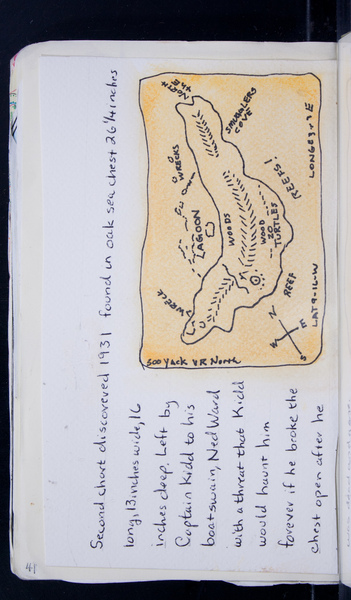 Second chart discovered 1931 found in oak sea chest 26 1/4 inches
long, 13 inches wide, 16
inches deep. Left by
Captain Kidd to his
boatswain, Ned Ward
with a threat that Kidd
would haunt him
forever if he broke the
chest open after he
NORTH
THE
SMUGGLERS
COVE
WRECKS
REEFS!
LAGOON
WOODS
WOOD
20
TURTLES
WRECK
REEF
N
E
S
W
LAT 9-16-W
North
41